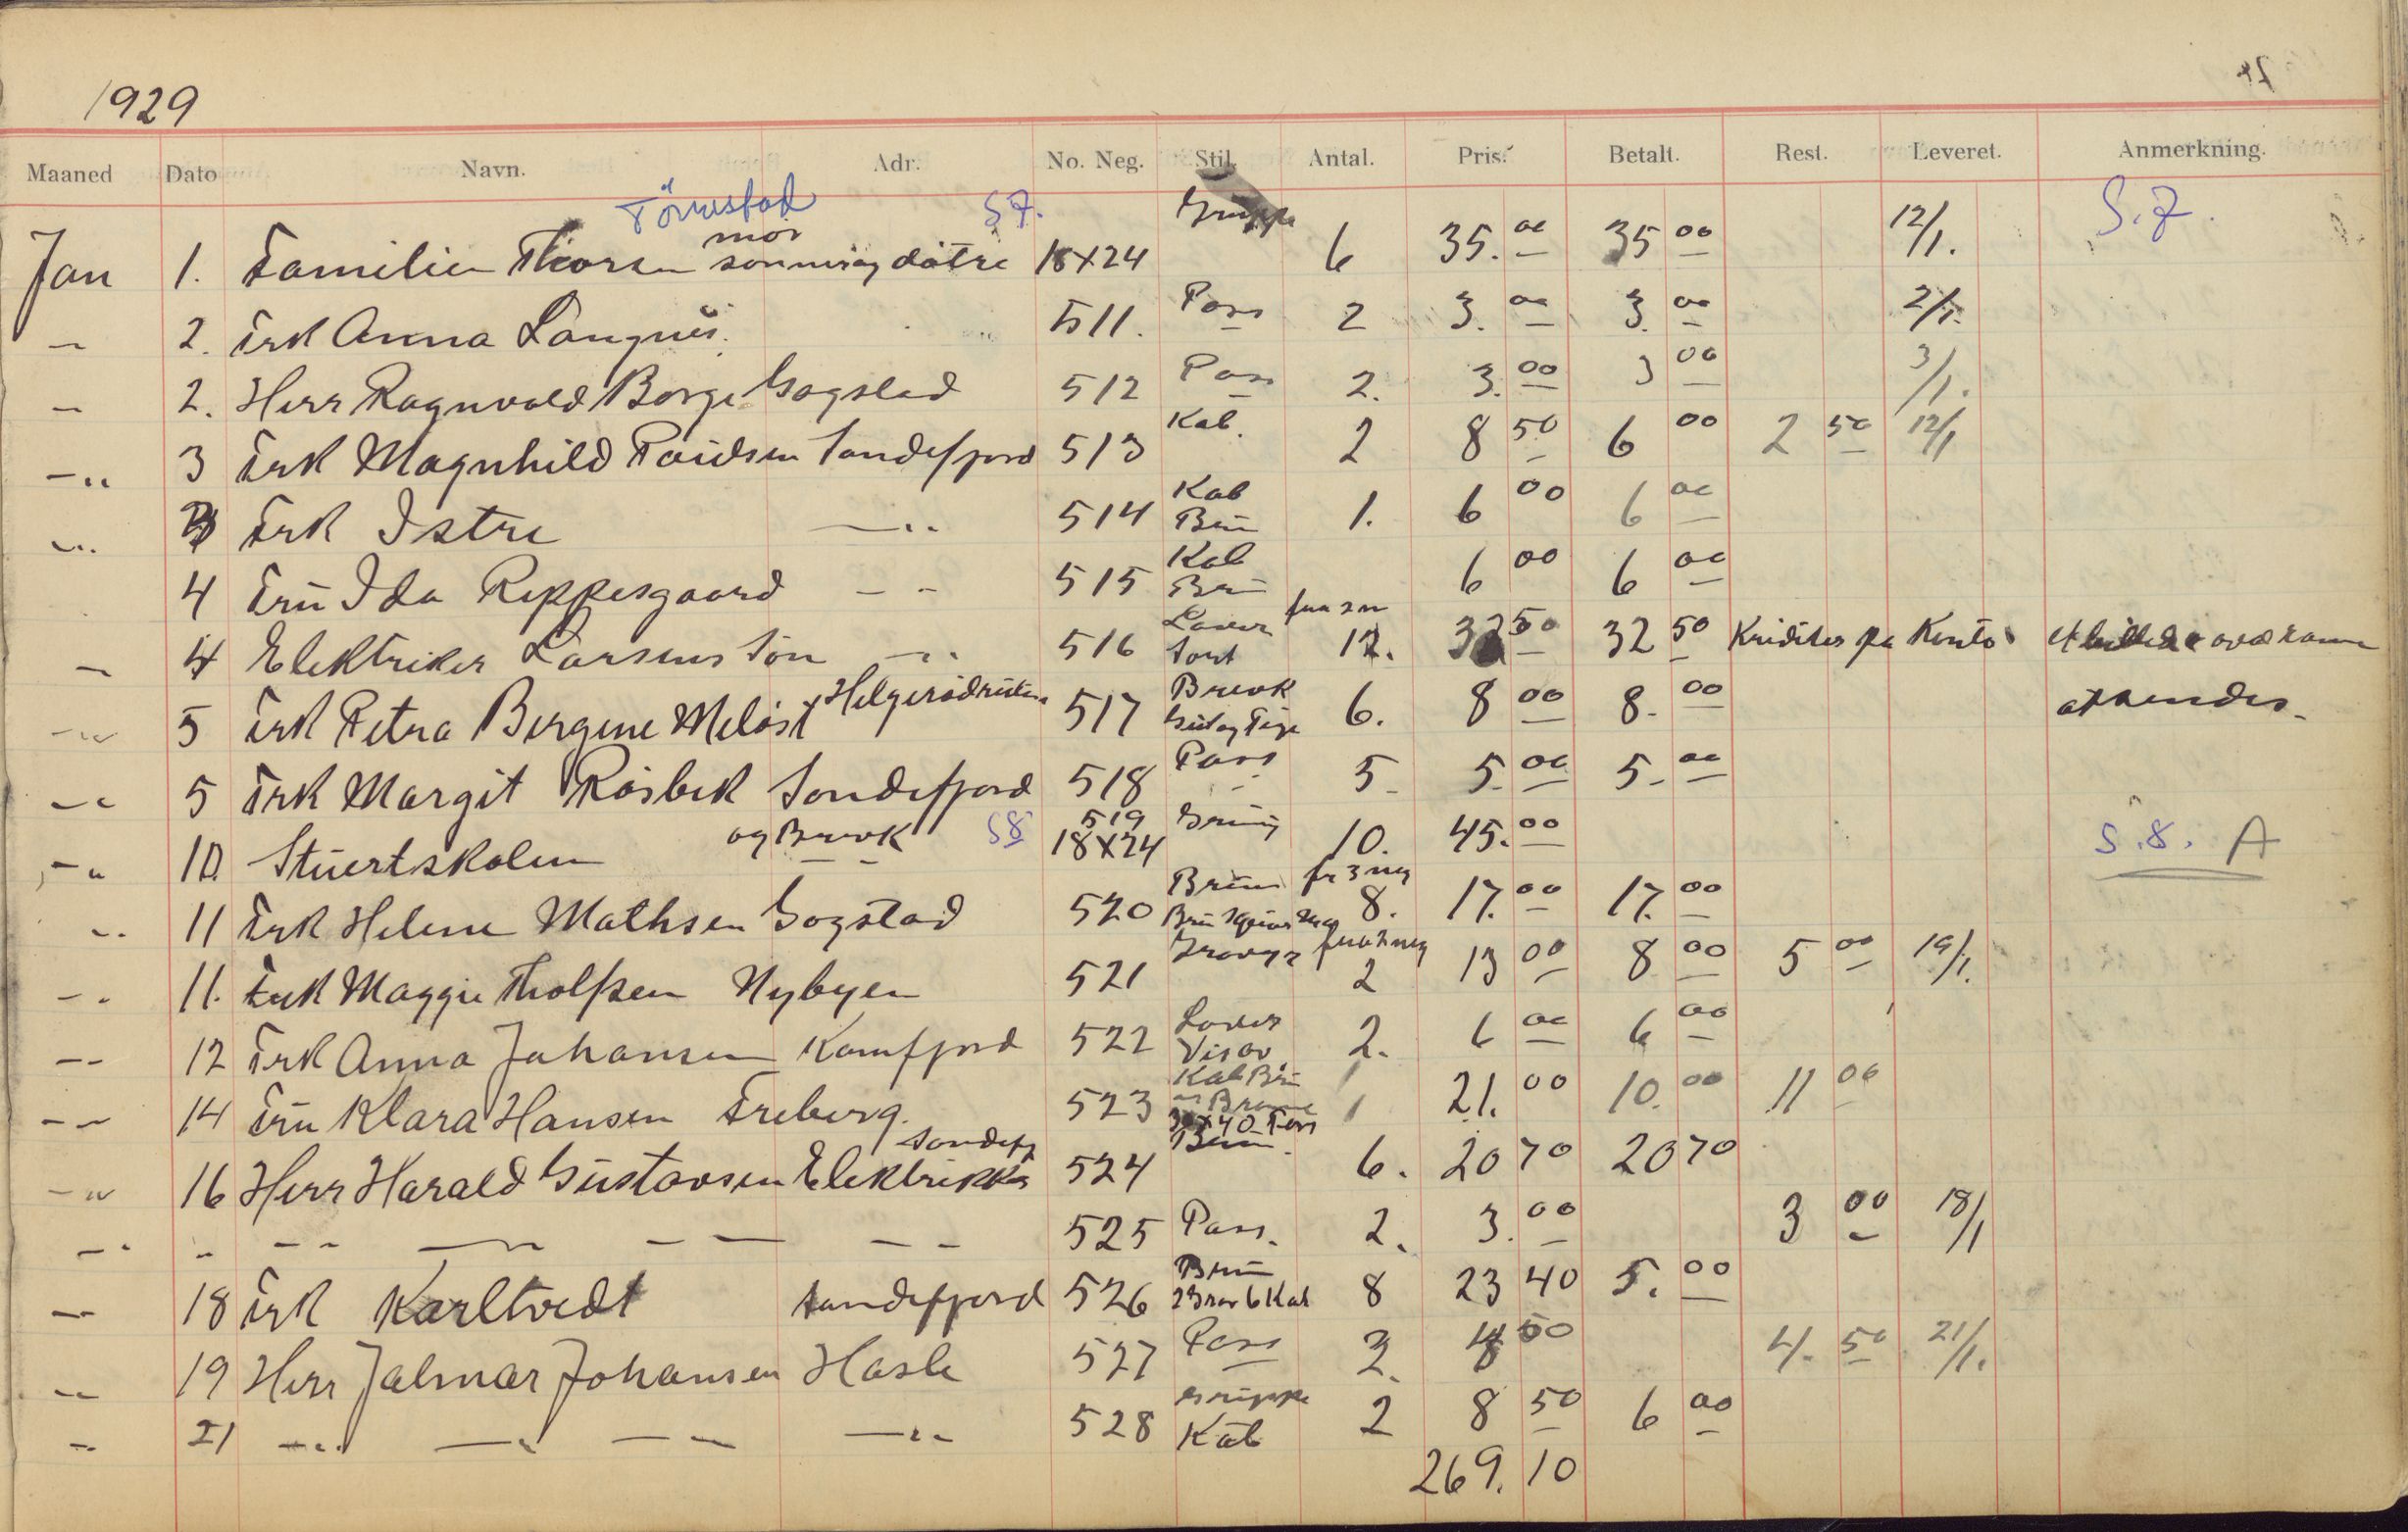 1929
Maaned Dato Navn. Adr. No. Neg. Stil. Antal. Pris. Betalt. Rest. Leveret. Anmerkning.
S 7. S. 7.
mor Gruppe
Jan 1. Familien Thorsen 18X24 6 35.00 35 00 12/1.
– 2. Frk Anna 511. Pass 2 3.00 3.00 2/1.
– 2. Herr Ragnvald Borge Gogstad 512 Pass 2. 3.00 3 00 3/1.
–" 3 Frk Magnhild Paulsen Sandefjord 513 Kab. 2 8 50 6 00 2 50 12/1
–" 3 Frk Istre –" 514 Kab Brun 1. 6 00 6 00
4 Fru Ida Reppesgaard – – 515 Kab Brun 6 00 6 00
– 4 Elektriker Larsens Søn –" 516 Sort 12. 32 50 32 50 Krediter pa Konto
–" 5 Frk Petra Bergene Meløst 517 Brevk 6. 8 00 8.00
–" 5 Frk Margit Røsbek Sandefjord 518 Pass 5 5.00 5.00
og Brevk S8 519
–" 10. Stuertskolen 18X24 10. 45.00 S.8. A
–" 11 Frk Helene Mathsen Gogstad 520 Brun 8. 17.00 17.00
–" 11. Frk Maggie Tholfsen Nybyen 521 2 13 00 8 00 5 00 19/1.
–– 12 Frk Anna Johansen Kamfjord 522 Visav 2. 6 00 6 00
–– 14 Fru Klara Hansen Freberg. 523 Kab Brun 1 21.00 10.00 11 00
30X40
Sandefj
–" 16 Herr Harald Gustavsen Elektrikker 524 Brun. 6. 20 70 20 70
–" " – – – – – – – 525 Pass. 2. 3.00 3 00 18/1
– 18 Frk Karltvedt Sandefjord 526 Brun 6 Kab 8 23 40 5.00
–– 19 Herr Jalmar Johansen Hasle 527 Pass 3. 4 50 4.50 21/1.
– 21 –" –" –– –" 528 Gruppe Kab 2 8 50 6 00
269.10